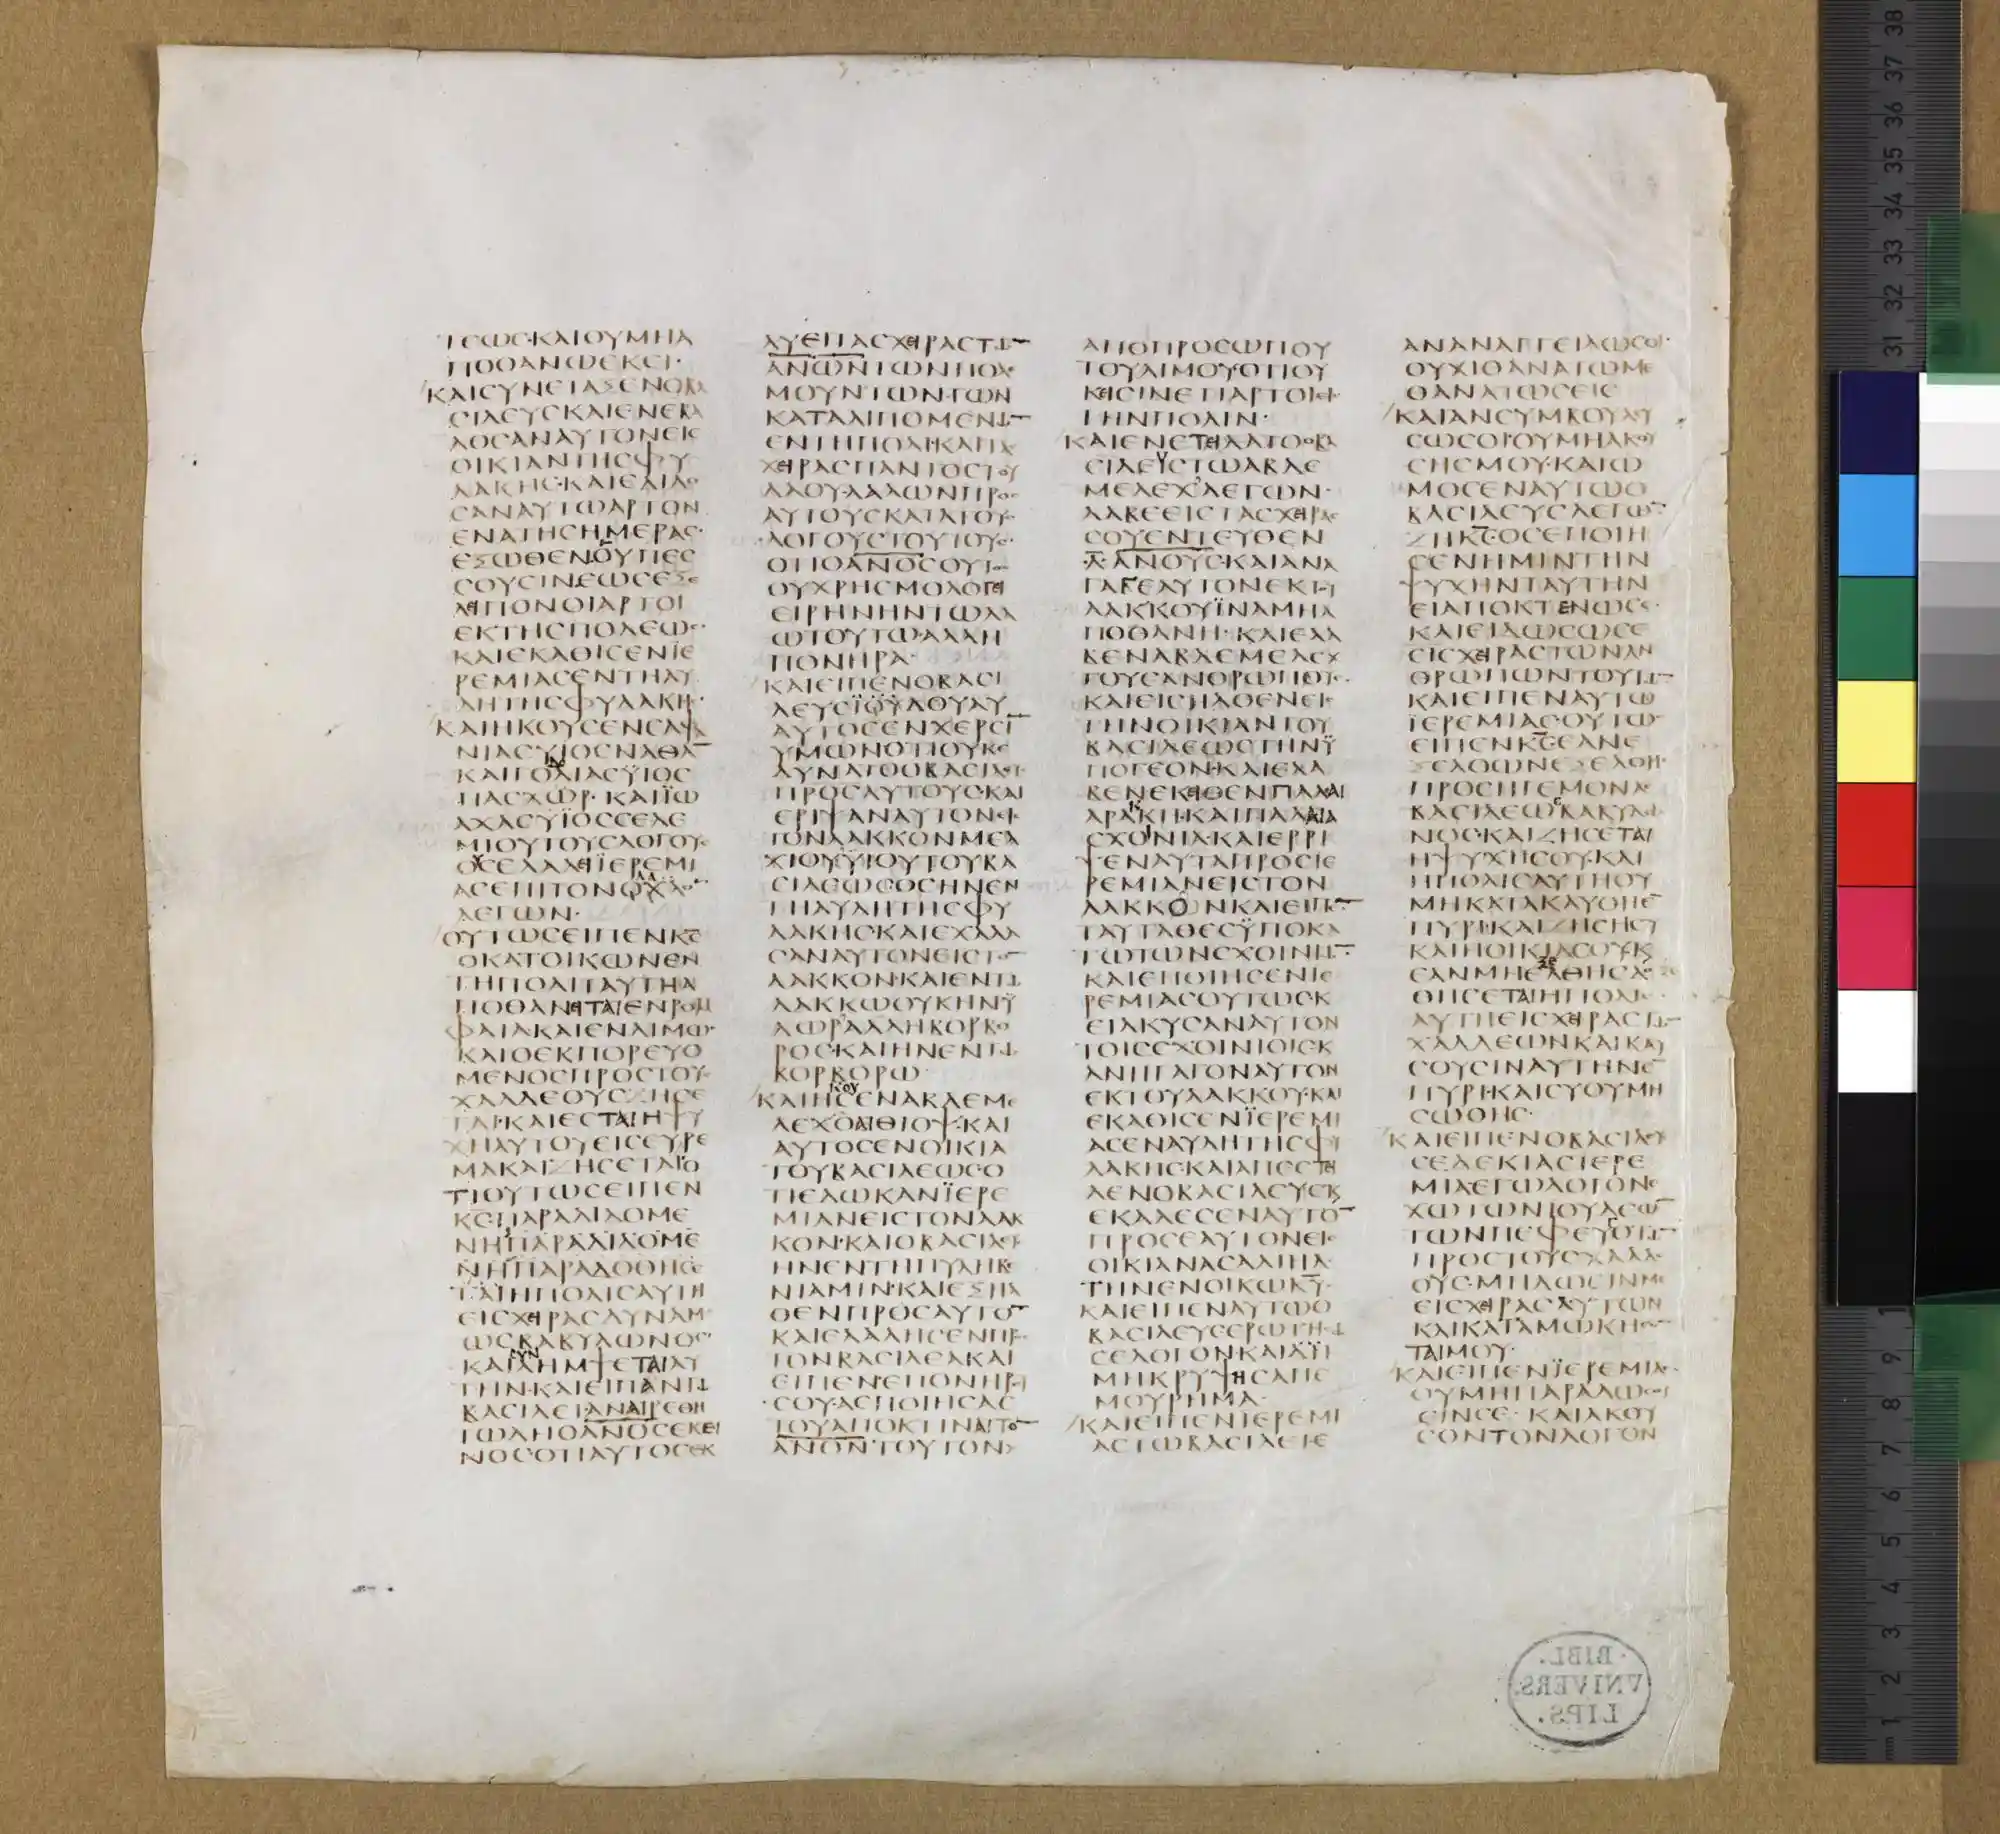 ΤΕΩϹ·ΚΑΙΟΥΜΗΑ
ΠΟΘΑΝΩΕΚΕΙ·
ΚΑΙϹΥΝΕΤΑΞΕΝΟΒΑ
ϹΙΛΕΥϹΚΑΙΕΝΕΒΑ
ΛΟϹΑΝΑΥΤΟΝΕΙϹ
ΟΙΚΙΑΝΤΗϹΦΥ
ΛΑΚΗϹ·ΚΑΙΕΔΙΔΟ
ϹΑΝΑΥΤΩΑΡΤΟΝ
ΕΝΑΤΗϹΗΜΕΡΑϹ·
ΕΞΩΘΕΝΟΥΠΕϹ
ϹΟΥϹΙΝΕΩϹΕΞΕ
ΛΕΙΠΟΝΟΙΑΡΤΟΙ
ΕΚΤΗϹΠΟΛΕΩϹ·
ΚΑΙΕΚΑΘΙϹΕΝΪΕ
ΡΕΜΙΑϹΕΝΤΗΑΥ
ΛΗΤΗϹΦΥΛΑΚΗϹ·
ΚΑΙΗΚΟΥϹΕΝϹΑΦΑ
ΝΙΑϹΥΙΟϹΝΑΘΑ̅
ΚΑΙΓΟΛΙΑϹΫΙΟϹ
ΠΑϹΧΩΡ·ΚΑΙΪΩ
ΑΧΑϹΥΪΟϹϹΕΛΕ
ΜΙΟΥΤΟΥϹΛΟΓΟΥϹ
ΟΥϹΕΛΑΛΕΙΪΕΡΕΜΙ
ΑϹΕΠΙΤΟΝΟΧΛΟ̅
ΛΕΓΩΝ·
ΟΥΤΩϹΕΙΠΕΝΚ̅Ϲ̅
ΟΚΑΤΟΙΚΩΝΕΝ
ΤΗΠΟΛΙΤΑΥΤΗΑ
ΠΟΘΑΝΕΙΤΑΙΕΝΡΟΜ
ΦΑΙΑΚΑΙΕΝΛΙΜΩ·
ΚΑΙΟΕΚΠΟΡΕΥΟ
ΜΕΝΟϹΠΡΟϹΤΟΥϹ
ΧΑΛΔΕΟΥϹΖΗϹΕ
ΤΑΙ·ΚΑΙΕϹΤΑΙΗΨΥ
ΧΗΑΥΤΟΥΕΙϹΕΥΡΕ
ΜΑΚΑΙΖΗϹΕΤΑΙΟ
ΤΙΟΥΤΩϹΕΙΠΕΝ
ΚϹΠΑΡΑΔΙΔΟΜΕ
ΝΗΠΑΡΑΔΙΔΟΜΕ
ΝΗΠΑΡΑΔΟΘΗϹΕ
ΤΑΙΗΠΟΛΙϹΑΥΤΗ
ΕΙϹΧΕΙΡΑϹΔΥΝΑΜ
ΩϹΒΑΒΥΛΩΝΟϹ·
ΚΑΙΛΗΜΨΕΤΑΙΑΥ
ΤΗΝ·ΚΑΙΕΙΠΑΝΤΩ
ΒΑϹΙΛΕΙΑΝΑΙΡΕΘΗ
ΤΩΔΗΟΑΝΟϹΕΚΕΙ
ΝΟϹΟΤΙΑΥΤΟϹΕΚ
ΛΥΕΙΤΑϹΧΕΙΡΑϹΤΩ̅
ΑΝΩΝΤΩΝΠΟΛΕ
ΜΟΥΝΤΩΝΤΩΝ
ΚΑΤΑΛΙΠΟΜΕΝΩ̅
ΕΝΤΗΠΟΛΙ·ΚΑΙΤΑϹ
ΧΕΙΡΑϹΠΑΝΤΟϹΤΟΥ
ΛΑΟΥ·ΛΑΛΩΝΠΡΟϹ
ΑΥΤΟΥϹΚΑΤΑΤΟΥϹ
ΛΟΓΟΥϹΤΟΥΤΟΥϹ·
ΟΤΙΟΑΝΟϹΟΥΤΟϹ
ΟΥΧΡΗϹΜΟΛΟΓΕΙ
ΕΙΡΗΝΗΝΤΩΛΑ
ΩΤΟΥΤΩ·ΑΛΛΗ
ΠΟΝΗΡΑ·
ΚΑΙΕΙΠΕΝΟΒΑϹΙ
ΛΕΥϹΪΔΟΥΑΥ
ΑΥΤΟϹΕΝΧΕΡϹΙ̅
ΥΜΩΝΟΤΙΟΥΚΕ
ΔΥΝΑΤΟΟΒΑϹΙΛΕΥϹ
ΠΡΟϹΑΥΤΟΥϹ·ΚΑΙ
ΕΡΙΨΑΝΑΥΤΟΝΕΙϹ
ΤΟΝΛΑΚΚΟΝΜΕΛ
ΧΙΟΥΫΙΟΥΤΟΥΒΑ
ϹΙΛΕΩϹΟϹΗΝΕΝ
ΤΗΑΥΛΗΤΗϹΦΥ
ΛΑΚΗϹ·ΚΑΙΕΧΑΛΑ
ϹΑΝΑΥΤΟΝΕΙϹΤΟ̅
ΛΑΚΚΟΝ·ΚΑΙΕΝΤΩ
ΛΑΚΚΩΟΥΚΗΝΫ
ΔΩΡ·ΑΛΛΗΚΟΡΚΟ
ΡΟϹ·ΚΑΙΗΝΕΝΤΩ
ΚΟΡΚΟΡΩ·
ΚΑΙΗΚΟΥϹΕΝΑΒΔΕΜΕ
ΛΕΧΟΑΙΘΙΟΨ·ΚΑΙ
ΑΥΤΟϹΕΝΟΙΚΙΑ
ΤΟΥΒΑϹΙΛΕΩϹ·Ο
ΤΙΕΔΩΚΑΝΪΕΡΕ
ΜΙΑΝΕΙϹΤΟΝΛΑΚ
ΚΟΝ·ΚΑΙΟΒΑϹΙΛΕΥϹ
ΗΝΕΝΤΗΠΥΛΗΒΕ
ΝΙΑΜΙΝ·ΚΑΙΕΞΗΛ
ΘΕΝΠΡΟϹΑΥΤΟ̅
ΚΑΙΕΛΑΛΗϹΕΝΠΡΟϹ
ΤΟΝΒΑϹΙΛΕΑΚΑΙ
ΕΙΠΕΝ·ΕΠΟΝΗΡΕΥ
ϹΟΥ·ΑϹΠΟΙΗϹΑϹ
ΤΟΥΑΠΟΚΤΙΝΑΙΤΟ̅
ΑΝΟΝΤΟΥΤΟΝ
ΑΠΟΠΡΟϹΩΠΟΥ
ΤΟΥΛΙΜΟΥ·ΟΤΙΟΥ
ΚΕΙϹΙΝΕΤΙΑΡΤΟΙΕΙϹ
ΤΗΝΠΟΛΙΝ·
ΚΑΙΕΝΕΤΕΙΛΑΤΟΟΒΑ
ϹΙΛΕΥϹΤΩΑΒΔΕ
ΜΕΛΕΧΛΕΓΩΝ·
ΛΑΒΕΕΙϹΤΑϹΧΕΙΡΑϹ
ϹΟΥΕΝΤΕΥΘΕΝ
Λ̅ΑΝΟΥϹ·ΚΑΙΑΝΑ
ΓΑΓΕΑΥΤΟΝΕΚΤΟΥ
ΛΑΚΚΟΥΪΝΑΜΗΑ
ΠΟΘΑΝΗ·ΚΑΙΕΛΑ
ΒΕΝΑΒΔΕΜΕΛΕΧ
ΤΟΥϹΑΝΘΡΩΠΟΥϹ·
ΚΑΙΕΙϹΗΛΘΕΝΕΙϹ
ΤΗΝΟΙΚΙΑΝΤΟΥ
ΒΑϹΙΛΕΩϹΤΗΝΫ
ΠΟΓΕΟΝ·ΚΑΙΕΛΑ
ΒΕΝΕΚΕΙΘΕΝΠΑΛΑΙ
ΑΡΑΚΗ·ΚΑΙΠΑΛΑΙΑ
ϹΧΟΝΙΑ·ΚΑΙΕΡΡΙ
ΨΕΝΑΥΤΑΠΡΟϹΙΕ
ΡΕΜΙΑΝΕΙϹΤΟΝ
ΛΑΚΚΟΝΚΑΙΕΙΠΕ̅
ΤΑΥΤΑΘΕϹΫΠΟΚΑ
ΤΩΤΩΝϹΧΟΙΝΙΩ̅·
ΚΑΙΕΠΟΙΗϹΕΝΙΕ
ΡΕΜΙΑϹΟΥΤΩϹ·Κ
ΕΙΛΚΥϹΑΝΑΥΤΟΝ
ΤΟΙϹϹΧΟΙΝΙΟΙϹ·Κ
ΑΝΗΓΑΓΟΝΑΥΤΟΝ
ΕΚΤΟΥΛΑΚΚΟΥ·ΚΑΙ
ΕΚΑΘΙϹΕΝΪΕΡΕΜΙ
ΑϹΕΝΑΥΛΗΤΗϹΦΥ
ΛΑΚΗϹ·ΚΑΙΑΠΕϹΤΕΙ
ΛΕΝΟΒΑϹΙΛΕΥϹΚ
ΕΚΑΛΕϹΕΝΑΥΤΟ̅
ΠΡΟϹΕΑΥΤΟΝΕΙϹ
ΟΙΚΙΑΝΑϹΑΛΙΗΛ
ΤΗΝΕΝΟΙΚΩΚ̅Υ̅·
ΚΑΙΕΙΠΕΝΑΥΤΩΟ
ΒΑϹΙΛΕΥϹΕΡΩΤΗϹΩ
ϹΕΛΟΓΟΝΚΑΙΔΗ
ΜΗΚΡΥΨΗϹΑΠΕ
ΜΟΥΡΗΜΑ·
ΚΑΙΕΙΠΕΝΙΕΡΕΜΙ
ΑϹΤΩΒΑϹΙΛΕΙΕ
ΑΝΑΝΑΓΓΕΙΛΩϹΟΙ·
ΟΥΧΙΘΑΝΑΤΩΜΕ
ΘΑΝΑΤΩϹΕΙϹ
ΚΑΙΑΝϹΥΜΒΟΥΛΕΥ
ϹΩϹΟΙΟΥΜΗΑΚΟΥ
ϹΗϹΜΟΥ·ΚΑΙΩ
ΜΟϹΕΝΑΥΤΩΟ
ΒΑϹΙΛΕΥϹΛΕΓΩ̅·
ΖΗΚ̅Ϲ̅ΟϹΕΠΟΙΗ
ϹΕΝΗΜΙΝΤΗΝ
ΨΥΧΗΝΤΑΥΤΗΝ
ΕΙΑΠΟΚΤΕΝΩϹΕ·
ΚΑΙΕΙΔΩϹΩϹΕ
ΕΙϹΧΕΙΡΑϹΤΩΝΑΝ
ΘΡΩΠΩΝΤΟΥΤΩ̅
ΚΑΙΕΙΠΕΝΑΥΤΩ
ΪΕΡΕΜΙΑϹΟΥΤΩϹ
ΕΙΠΕΝΚ̅Ϲ̅ΕΑΝΕ
ΞΕΛΘΩΝΕΞΕΛΘΗϹ
ΠΡΟϹΗΓΕΜΟΝΑϹ
ΒΑϹΙΛΕΩϹΒΑΒΥΛΩ
ΝΟϹ·ΚΑΙΖΗϹΕΤΑΙ
ΗΨΥΧΗϹΟΥ·ΚΑΙ
ΗΠΟΛΙϹΑΥΤΗΟΥ
ΜΗΚΑΤΑΚΑΥΘΗΕ̅
ΠΥΡΙ·ΚΑΙΖΗϹΗϹΥ
ΚΑΙΗΟΙΚΙΑϹΟΥ·Κ
ΕΑΝΜΗΕΞΕΛΘΗϹΔΟ
ΘΗϹΕΤΑΙΗΠΟΛΙϹ
ΑΥΤΗΕΙϹΧΕΙΡΑϹΤΩ̅
ΧΑΛΔΕΩΝΚΑΙΚΑΥ
ϹΟΥϹΙΝΑΥΤΗΝΕ̅
ΠΥΡΙ·ΚΑΙϹΥΟΥΜΗ
ϹΩΘΗϹ·
ΚΑΙΕΙΠΕΝΟΒΑϹΙΛΕΥϹ
ϹΕΔΕΚΙΑϹΪΕΡΕ
ΜΙΑΕΓΩΛΟΓΟΝΕ
ΧΩΤΩΝΙΟΥΔΕΩ̅
ΤΩΝΠΕΦΕΥΓΟΤΩ̅
ΠΡΟϹΤΟΥϹΧΑΛΔΑΙ
ΟΥϹ·ΜΗΔΩϹΙΝΜΕ
ΕΙϹΧΕΙΡΑϹΑΥΤΩΝ
ΚΑΙΚΑΤΑΜΩΚΗϹΟ̅
ΤΑΙΜΟΥ·
ΚΑΙΕΙΠΕΝΪΕΡΕΜΙΑϹ
ΟΥΜΗΠΑΡΑΔΩϹΟΥ
ϹΙΝϹΕ·ΚΑΙΑΚΟΥ
ϹΟΝΤΟΝΛΟΓΟΝ
BIBL.
VNIVERS.
LIPS.